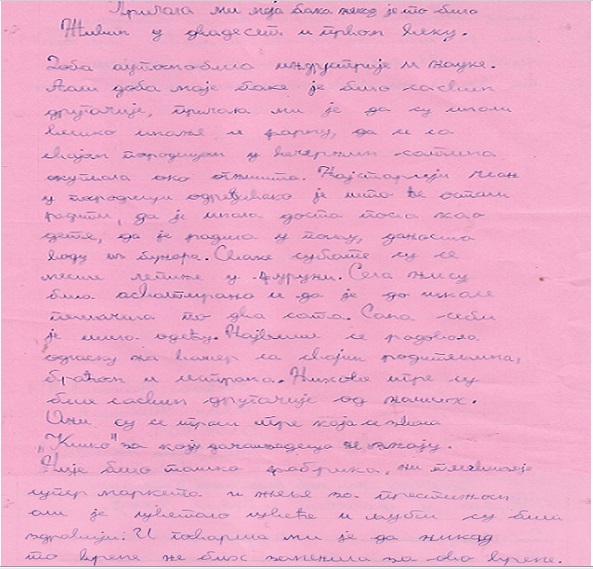 Причала ми моја бака некад је то било
Живим у двадесет и првом веку.
Доба аутомобила индустрије и науке.
Али доба моје баке је било сасвим
другачије, причала ми је да су имали
велико имање и фарму, да се са
својом породицом у вечерњим сатима
окупљала око огњишта. Најстарији члан
у породици одређивао је шта ће остали
радити, да је имала доста посла као
дете, да је радила у пољу, доносила
воду из бунара. Сваке суботе су се
месиле лепиње у фуруни. Села нису
била асфалтирана и да је до школе
пешачила по два сата. Сама себи
је шила одећу. Највише се радовала
одласку на вашер са својим родитељима,
браћом и сестрама. Њихове игре су
биле сасвим другачије од наших.
Они су се играли игре која се звала
„Клико" за коју данашња деца не знају.
Није било толико фабрика, ни
супер маркета и жеље за престижом
али је цветало цвеће и људи су били
здравији. И поварила ми је да никад
то време не би заменила за ово време.